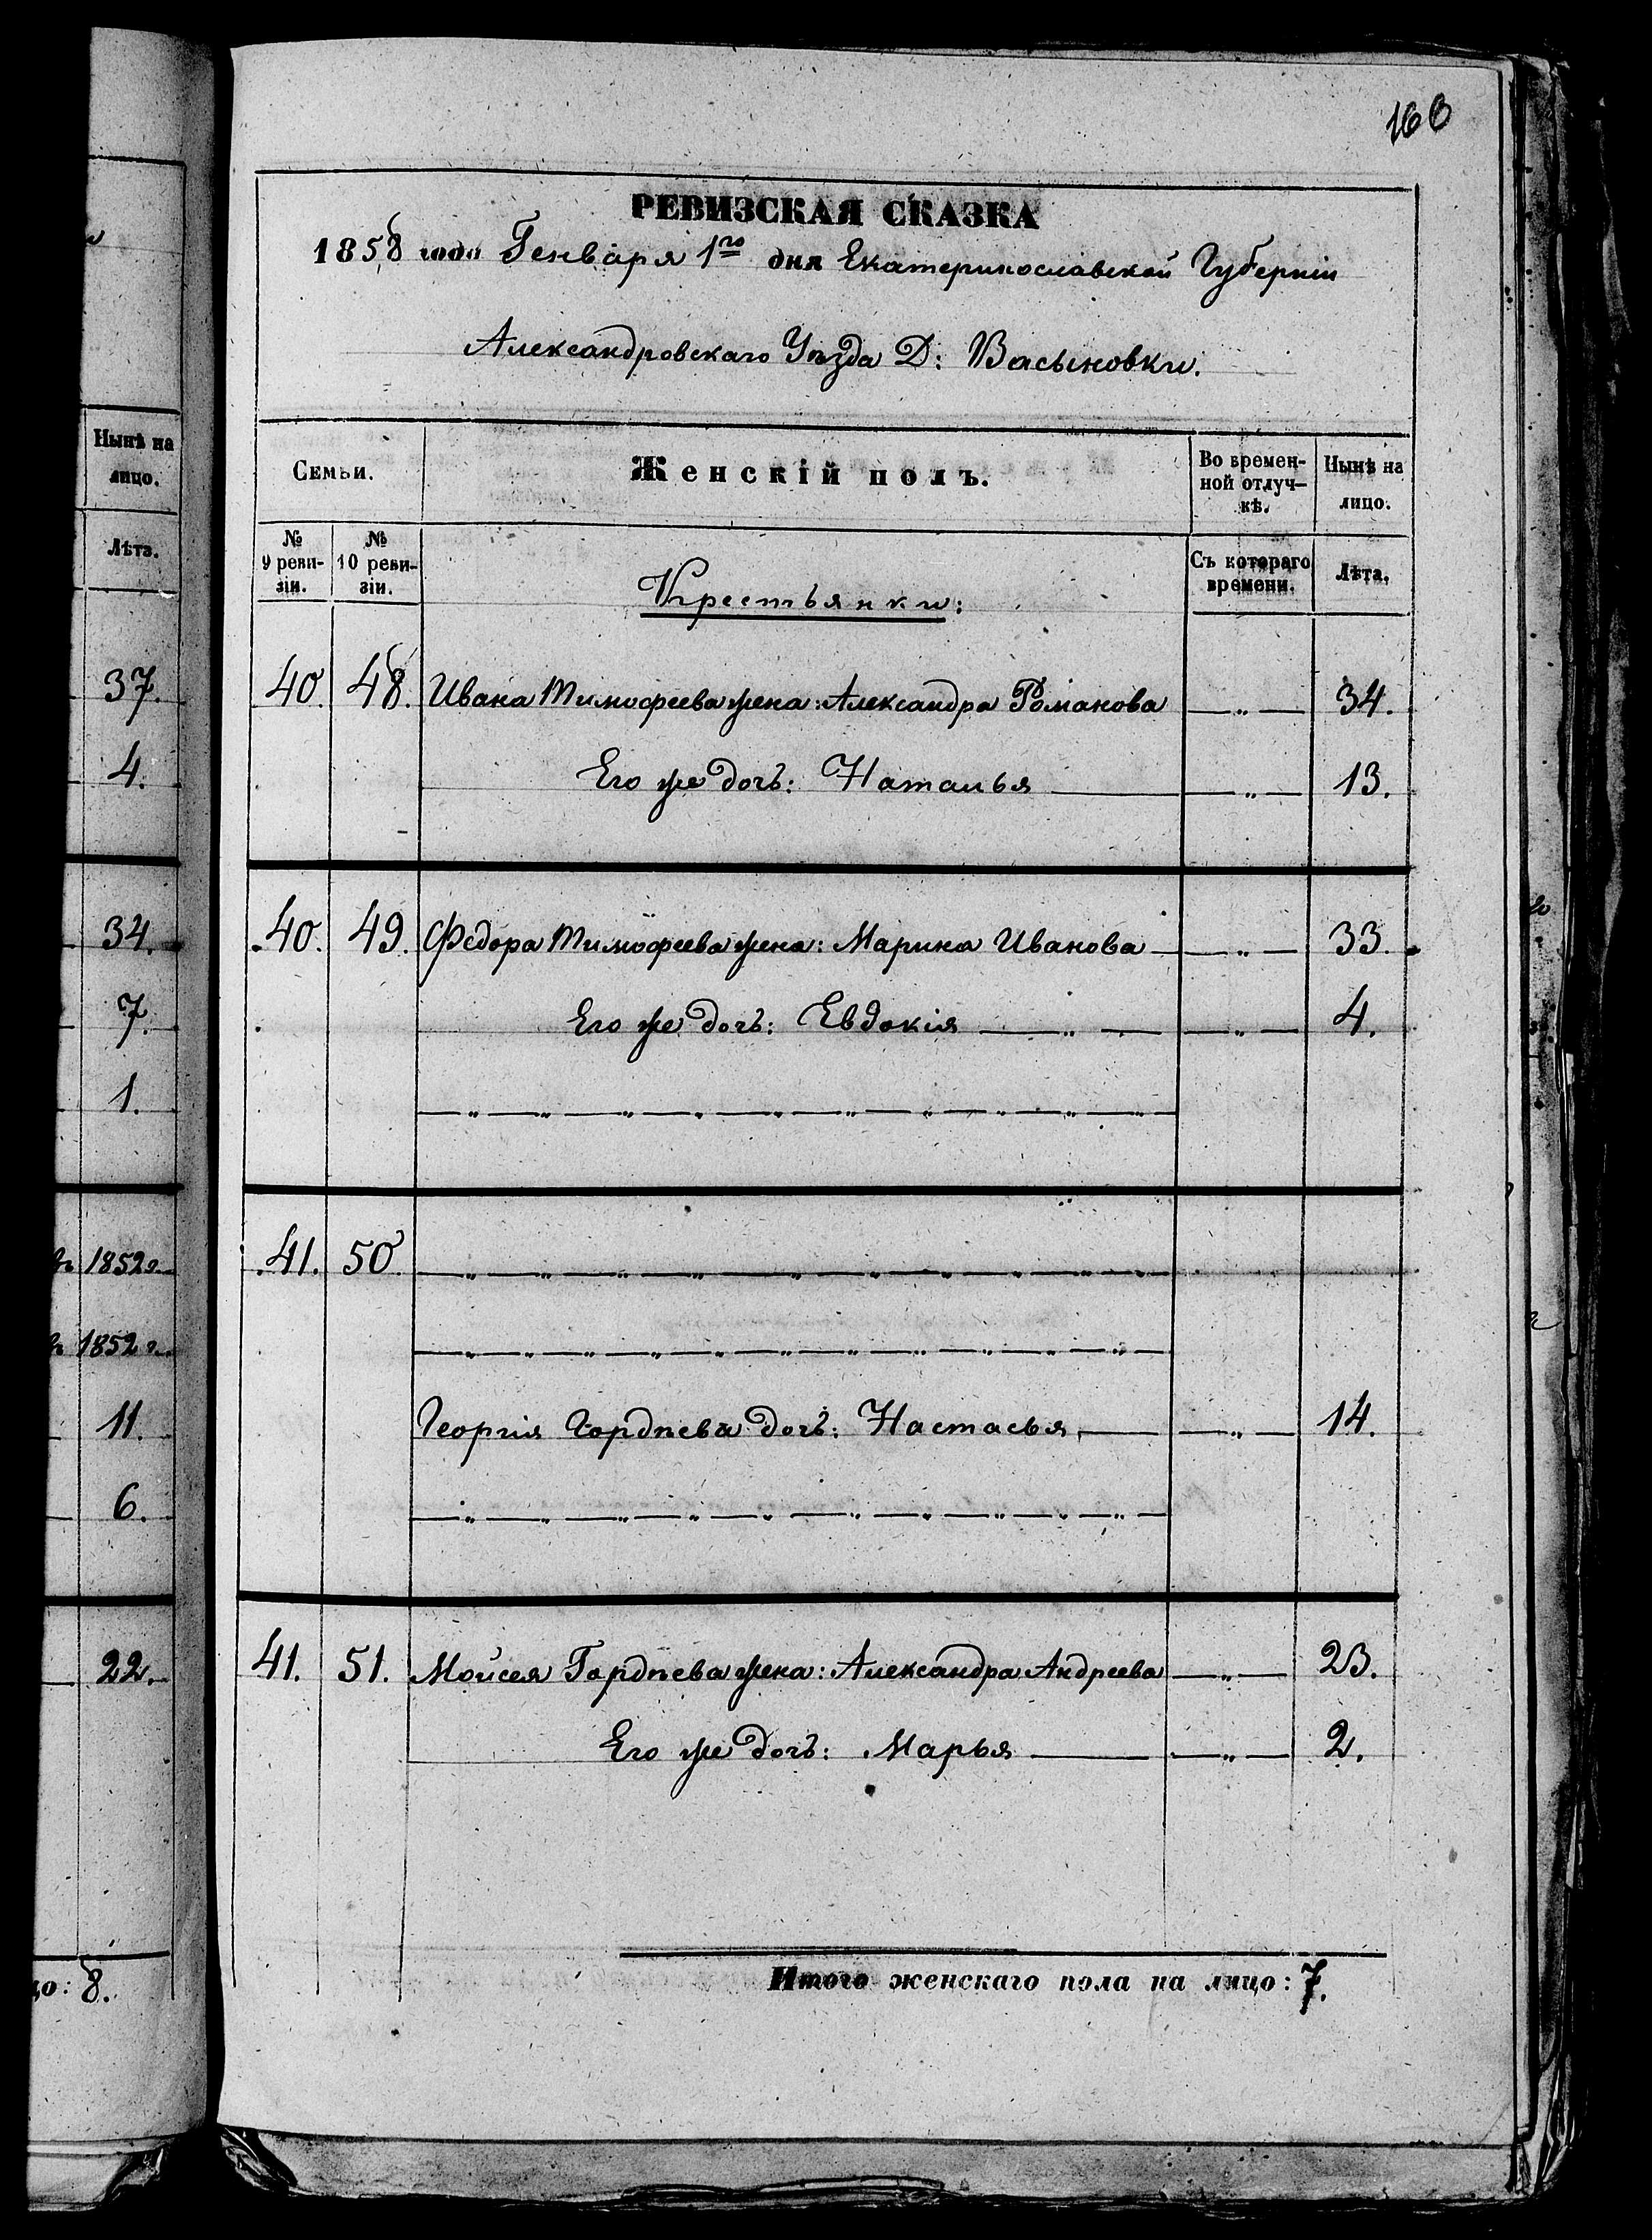 Нынѣ на
лицо.
Лѣта.
37.
4.
34.
7.
1.
1852 г.
1852 г.
11.
6.
22.
8.
РЕВИЗСКАЯ СКАЗКА
1858 года Генваря 1го дня Екатеринославской Губерніи
Александровскаго Уѣзда Д: Васыновки.
Семьи. Женскій полъ. Во времен- Нынѣ на
ной отлуч- лицо.
кѣ.
№ № Съ котораго Лѣта.
9 реви- 10 реви- времени.
зіи. зіи.
Крестьянки:
40. 48. Ивана Тимофеева жена: Александра Романова — „ — 34.
Его же дочь: Наталья — „ — 13.
40. 49. Федора Тимофеева жена: Марина Иванова — „ — 33.
Его же дочь: Евдокія — „ — — „ — 4.
41. 50
Георгія Гордѣева дочь: Настасья — „ — 14.
41. 51. Мойсея Гордѣева жена: Александра Андреева — „ — 23.
Его же дочь: Марья — „ — 2.
Итого женскаго пола на лицо: 7.